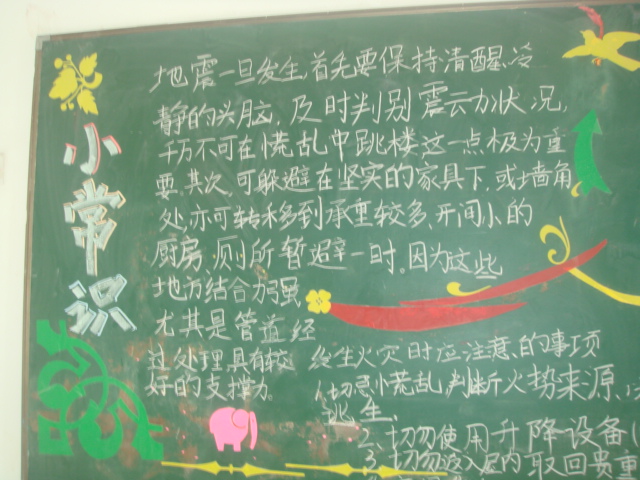 小常识
地震一旦发生,首先要保持清醒、冷
静的头脑,及时判别震云力状况,
千万不可在慌乱中跳楼,这一点极为重
要,其次,可躲避在坚实的家具下,或墙角
处,亦可转移到承重较多、开间小的
厨房、厕所暂避一时。因为这些
地方结合力强
尤其是管道经
过处理具有较
好的支撑力
发生火灾时应注意的事项
1、切忌慌乱,判断火势来源,
逃生、
2、切勿使用升降设备(
3、切勿返入屋内取回贵重